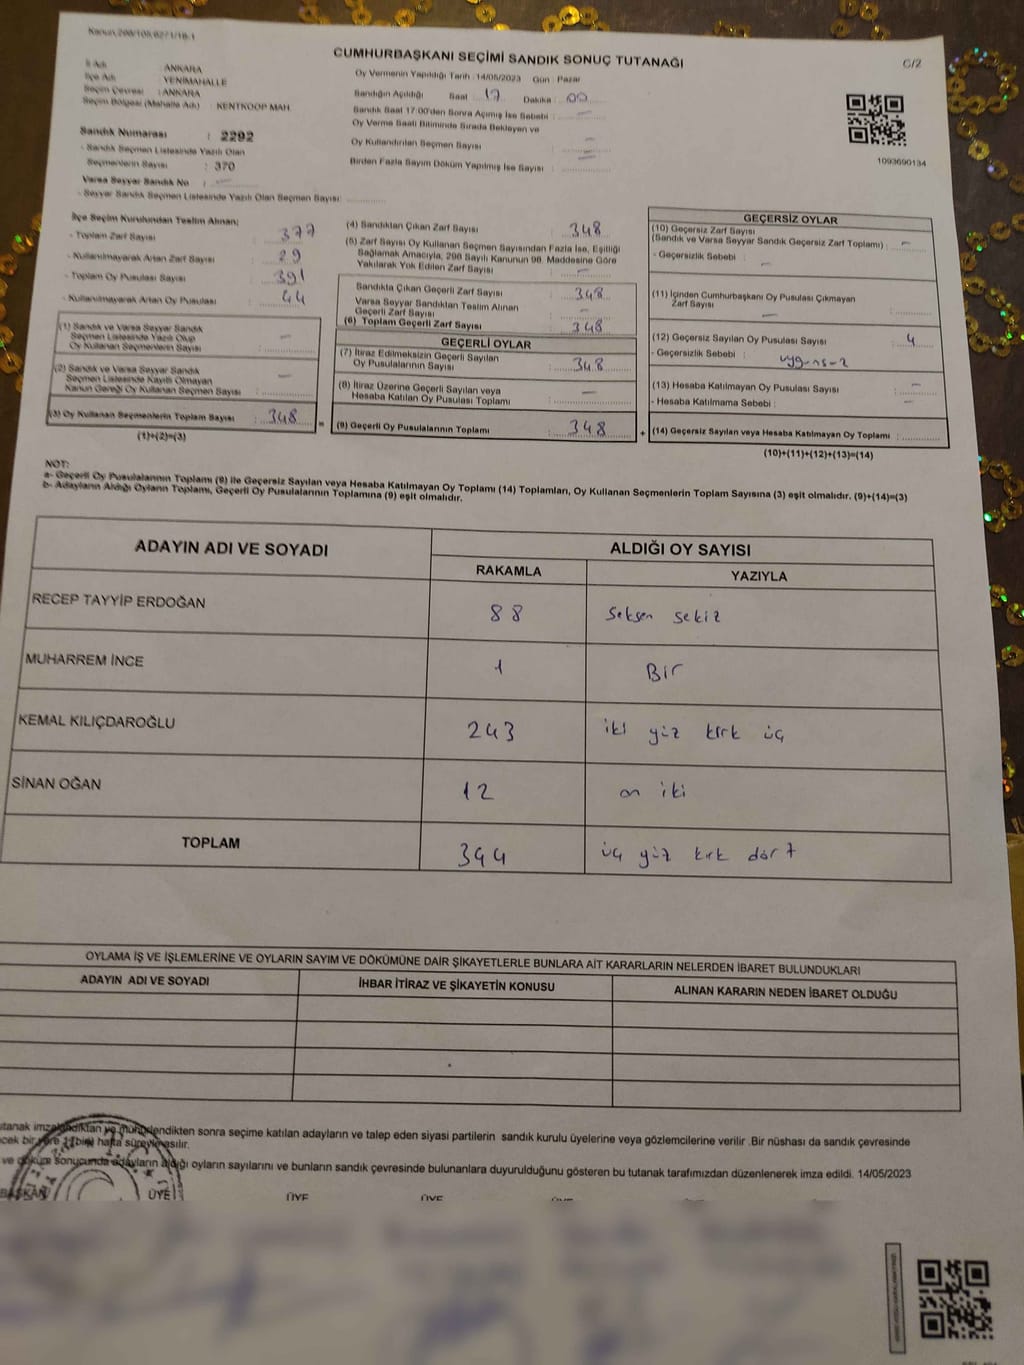 CUMHURBAŞKANI SEÇİMİ SANDIK SONUÇ TUTANAĞI
C/2
İl Adı : ANKARA
İlçe Adı : YENİMAHALLE
Seçim Çevresi : ANKARA
Seçim Bölgesi (Mahalle Adı) : KENTKOOP MAH
Sandık Numarası : 2292
- Sandık Seçmen Listesinde Yazılı Olan
Seçmenlerin Sayısı : 370
Varsa Seyyar Sandık No : -
- Seyyar Sandık Seçmen Listesinde Yazılı Olan Seçmen Sayısı:
Oy Vermenin Yapıldığı Tarih : 14/05/2023 Gün : Pazar
Sandığın Açıldığı Saat 17 Dakika 00
Sandık Saat 17:00'den Sonra Açılmış İse Sebebi : -
Oy Verme Saati Bitiminde Sırada Bekleyen ve
Oy Kullandırılan Seçmen Sayısı : -
Birden Fazla Sayım Döküm Yapılmış İse Sayısı : -
1093690134
İlçe Seçim Kurulundan Teslim Alınan;
- Toplam Zarf Sayısı : 377
- Kullanılmayarak Artan Zarf Sayısı : 29
- Toplam Oy Pusulası Sayısı : 391
- Kullanılmayarak Artan Oy Pusulası : 44
(1) Sandık ve Varsa Seyyar Sandık
Seçmen Listesinde Yazılı Olup
Oy Kullanan Seçmenlerin Sayısı : -
(2) Sandık ve Varsa Seyyar Sandık
Seçmen Listesinde Kayıtlı Olmayan
Kanun Gereği Oy Kullanan Seçmen Sayısı : -
(3) Oy Kullanan Seçmenlerin Toplam Sayısı : 348
(1)+(2)=(3)
(4) Sandıktan Çıkan Zarf Sayısı : 348
(5) Zarf Sayısı Oy Kullanan Seçmen Sayısından Fazla İse, Eşitliği
Sağlamak Amacıyla, 298 Sayılı Kanunun 98. Maddesine Göre
Yakılarak Yok Edilen Zarf Sayısı : -
Sandıkta Çıkan Geçerli Zarf Sayısı : 348
Varsa Seyyar Sandıktan Teslim Alınan
Geçerli Zarf Sayısı : -
(6) Toplam Geçerli Zarf Sayısı : 348
GEÇERLİ OYLAR
(7) İtiraz Edilmeksizin Geçerli Sayılan
Oy Pusulalarının Sayısı : 348
(8) İtiraz Üzerine Geçerli Sayılan veya
Hesaba Katılan Oy Pusulası Toplamı : -
(9) Geçerli Oy Pusulalarının Toplamı : 348
GEÇERSİZ OYLAR
(10) Geçersiz Zarf Sayısı
(Sandık ve Varsa Seyyar Sandık Geçersiz Zarf Toplamı) : -
- Geçersizlik Sebebi : -
(11) İçinden Cumhurbaşkanı Oy Pusulası Çıkmayan
Zarf Sayısı : -
(12) Geçersiz Sayılan Oy Pusulası Sayısı : 4
- Geçersizlik Sebebi :
(13) Hesaba Katılmayan Oy Pusulası Sayısı : -
- Hesaba Katılmama Sebebi : -
(14) Geçersiz Sayılan veya Hesaba Katılmayan Oy Toplamı :
(10)+(11)+(12)+(13)=(14)
NOT:
a- Geçerli Oy Pusulalarının Toplamı (9) ile Geçersiz Sayılan veya Hesaba Katılmayan Oy Toplamı (14) Toplamları, Oy Kullanan Seçmenlerin Toplam Sayısına (3) eşit olmalıdır. (9)+(14)=(3)
b- Adayların Aldığı Oyların Toplamı, Geçerli Oy Pusulalarının Toplamına (9) eşit olmalıdır.
ADAYIN ADI VE SOYADI
ALDIĞI OY SAYISI
RAKAMLA YAZIYLA
RECEP TAYYİP ERDOĞAN 88 Seksen sekiz
MUHARREM İNCE 1 Bir
KEMAL KILIÇDAROĞLU 243 iki yüz kırk üç
SİNAN OĞAN 12 on iki
TOPLAM 344 üç yüz kırk dört
OYLAMA İŞ VE İŞLEMLERİNE VE OYLARIN SAYIM VE DÖKÜMÜNE DAİR ŞİKAYETLERLE BUNLARA AİT KARARLARIN NELERDEN İBARET BULUNDUKLARI
ADAYIN ADI VE SOYADI İHBAR İTİRAZ VE ŞİKAYETİN KONUSU ALINAN KARARIN NEDEN İBARET OLDUĞU
sonra seçime katılan adayların ve talep eden siyasi partilerin sandık kurulu üyelerine veya gözlemcilerine verilir .Bir nüshası da sandık çevresinde
hafta süreyle asılır.
ve döküm sonucunda adayların aldığı oyların sayılarını ve bunların sandık çevresinde bulunanlara duyurulduğunu gösteren bu tutanak tarafımızdan düzenlenerek imza edildi. 14/05/2023
BAŞKAN ÜYE ÜYE ÜYE